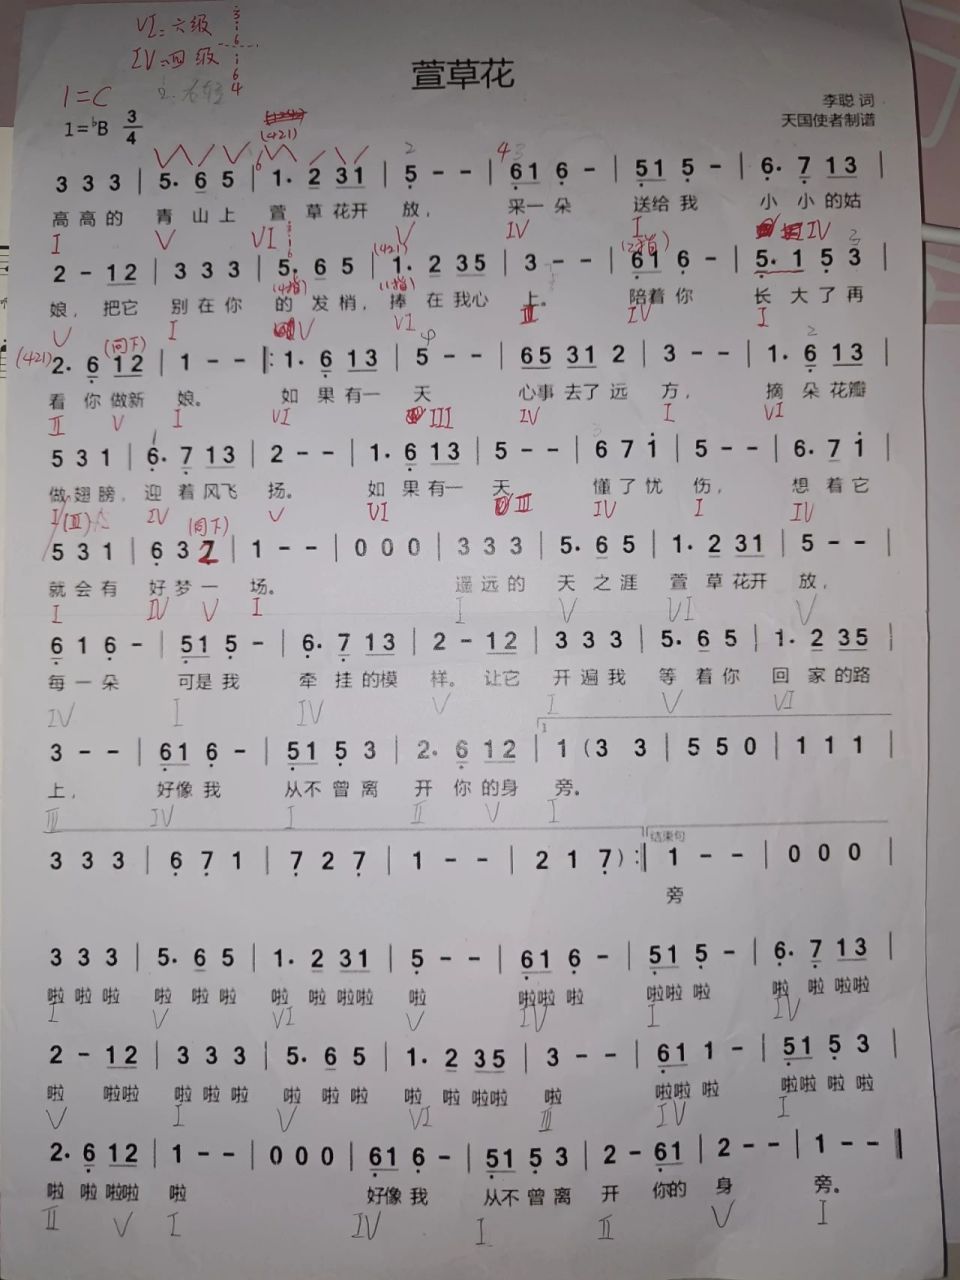 VI=六级 3 i 6
IV=四级 i 6 4
1=C
萱草花
李聪 词
天国使者制谱
1=♭B 3/4
(421)
3 3 3 | 5. 6 5 | 1. 2 31 | 5 - - | 61 6 - | 51 5 - | 6. 7 13 |
高高的 青山上 萱草花开 放， 采一朵 送给我 小小的姑
I V VI V IV I IV
(421) (2指)
2 - 12 | 3 3 3 | 5. 6 5 | 1. 2 35 | 3 - - | 61 6 - | 5. 1 5 3 |
(4指) (1指)
娘，把它 别在你 的发梢，捧在我心 上。 陪着你 长大了再
V I V VI III IV I
(421) (同下)
2. 6 12 | 1 - - |: 1. 6 13 | 5 - - | 65 31 2 | 3 - - | 1. 6 13 |
看你做新 娘。 如果有一 天 心事去了远 方， 摘朵花瓣
II V I VI III IV I VI
5 3 1 | 6. 7 13 | 2 - - | 1. 6 13 | 5 - - | 6 7 i | 5 - - | 6. 7 i
做翅膀，迎着风飞 扬。 如果有一 天 懂了忧 伤， 想着它
I (III) IV V VI III IV I IV
(同下)
5 3 1 | 6 3 2 | 1 - - | 0 0 0 | 3 3 3 | 5. 6 5 | 1. 2 31 | 5 - - |
就会有 好梦一 场。 遥远的 天之涯 萱草花开 放，
I IV V I I V VI V
6 1 6 - | 51 5 - | 6. 7 13 | 2 - 12 | 3 3 3 | 5. 6 5 | 1. 2 35 |
每一朵 可是我 牵挂的模 样。让它 开遍我 等着你 回家的路
IV I IV V I V VI
3 - - | 61 6 - | 51 5 3 | 2. 6 12 | 1 (3 3 | 5 5 0 | 1 1 1 |
上， 好像我 从不曾离 开你的身 旁。
III IV I II V I
3 3 3 | 6 7 1 | 7 2 7 | 1 - - | 2 1 7) :| 结束句 1 - - | 0 0 0 |
旁
3 3 3 | 5. 6 5 | 1. 2 31 | 5 - - | 61 6 - | 51 5 - | 6. 7 13 |
啦啦啦 啦啦啦 啦啦啦啦 啦 啦啦啦 啦啦啦 啦啦啦啦
I V VI V IV I IV
2 - 12 | 3 3 3 | 5. 6 5 | 1. 2 35 | 3 - - | 61 1 - | 51 5 3 |
啦 啦啦 啦啦啦 啦啦啦 啦啦啦啦 啦 啦啦啦 啦啦啦啦
V I V VI III IV I
2. 6 12 | 1 - - | 0 0 0 | 61 6 - | 51 5 3 | 2 - 61 | 2 - - | 1 - - ‖
啦啦啦啦 啦 好像我 从不曾离 开 你的 身 旁。
II V I IV I II V I